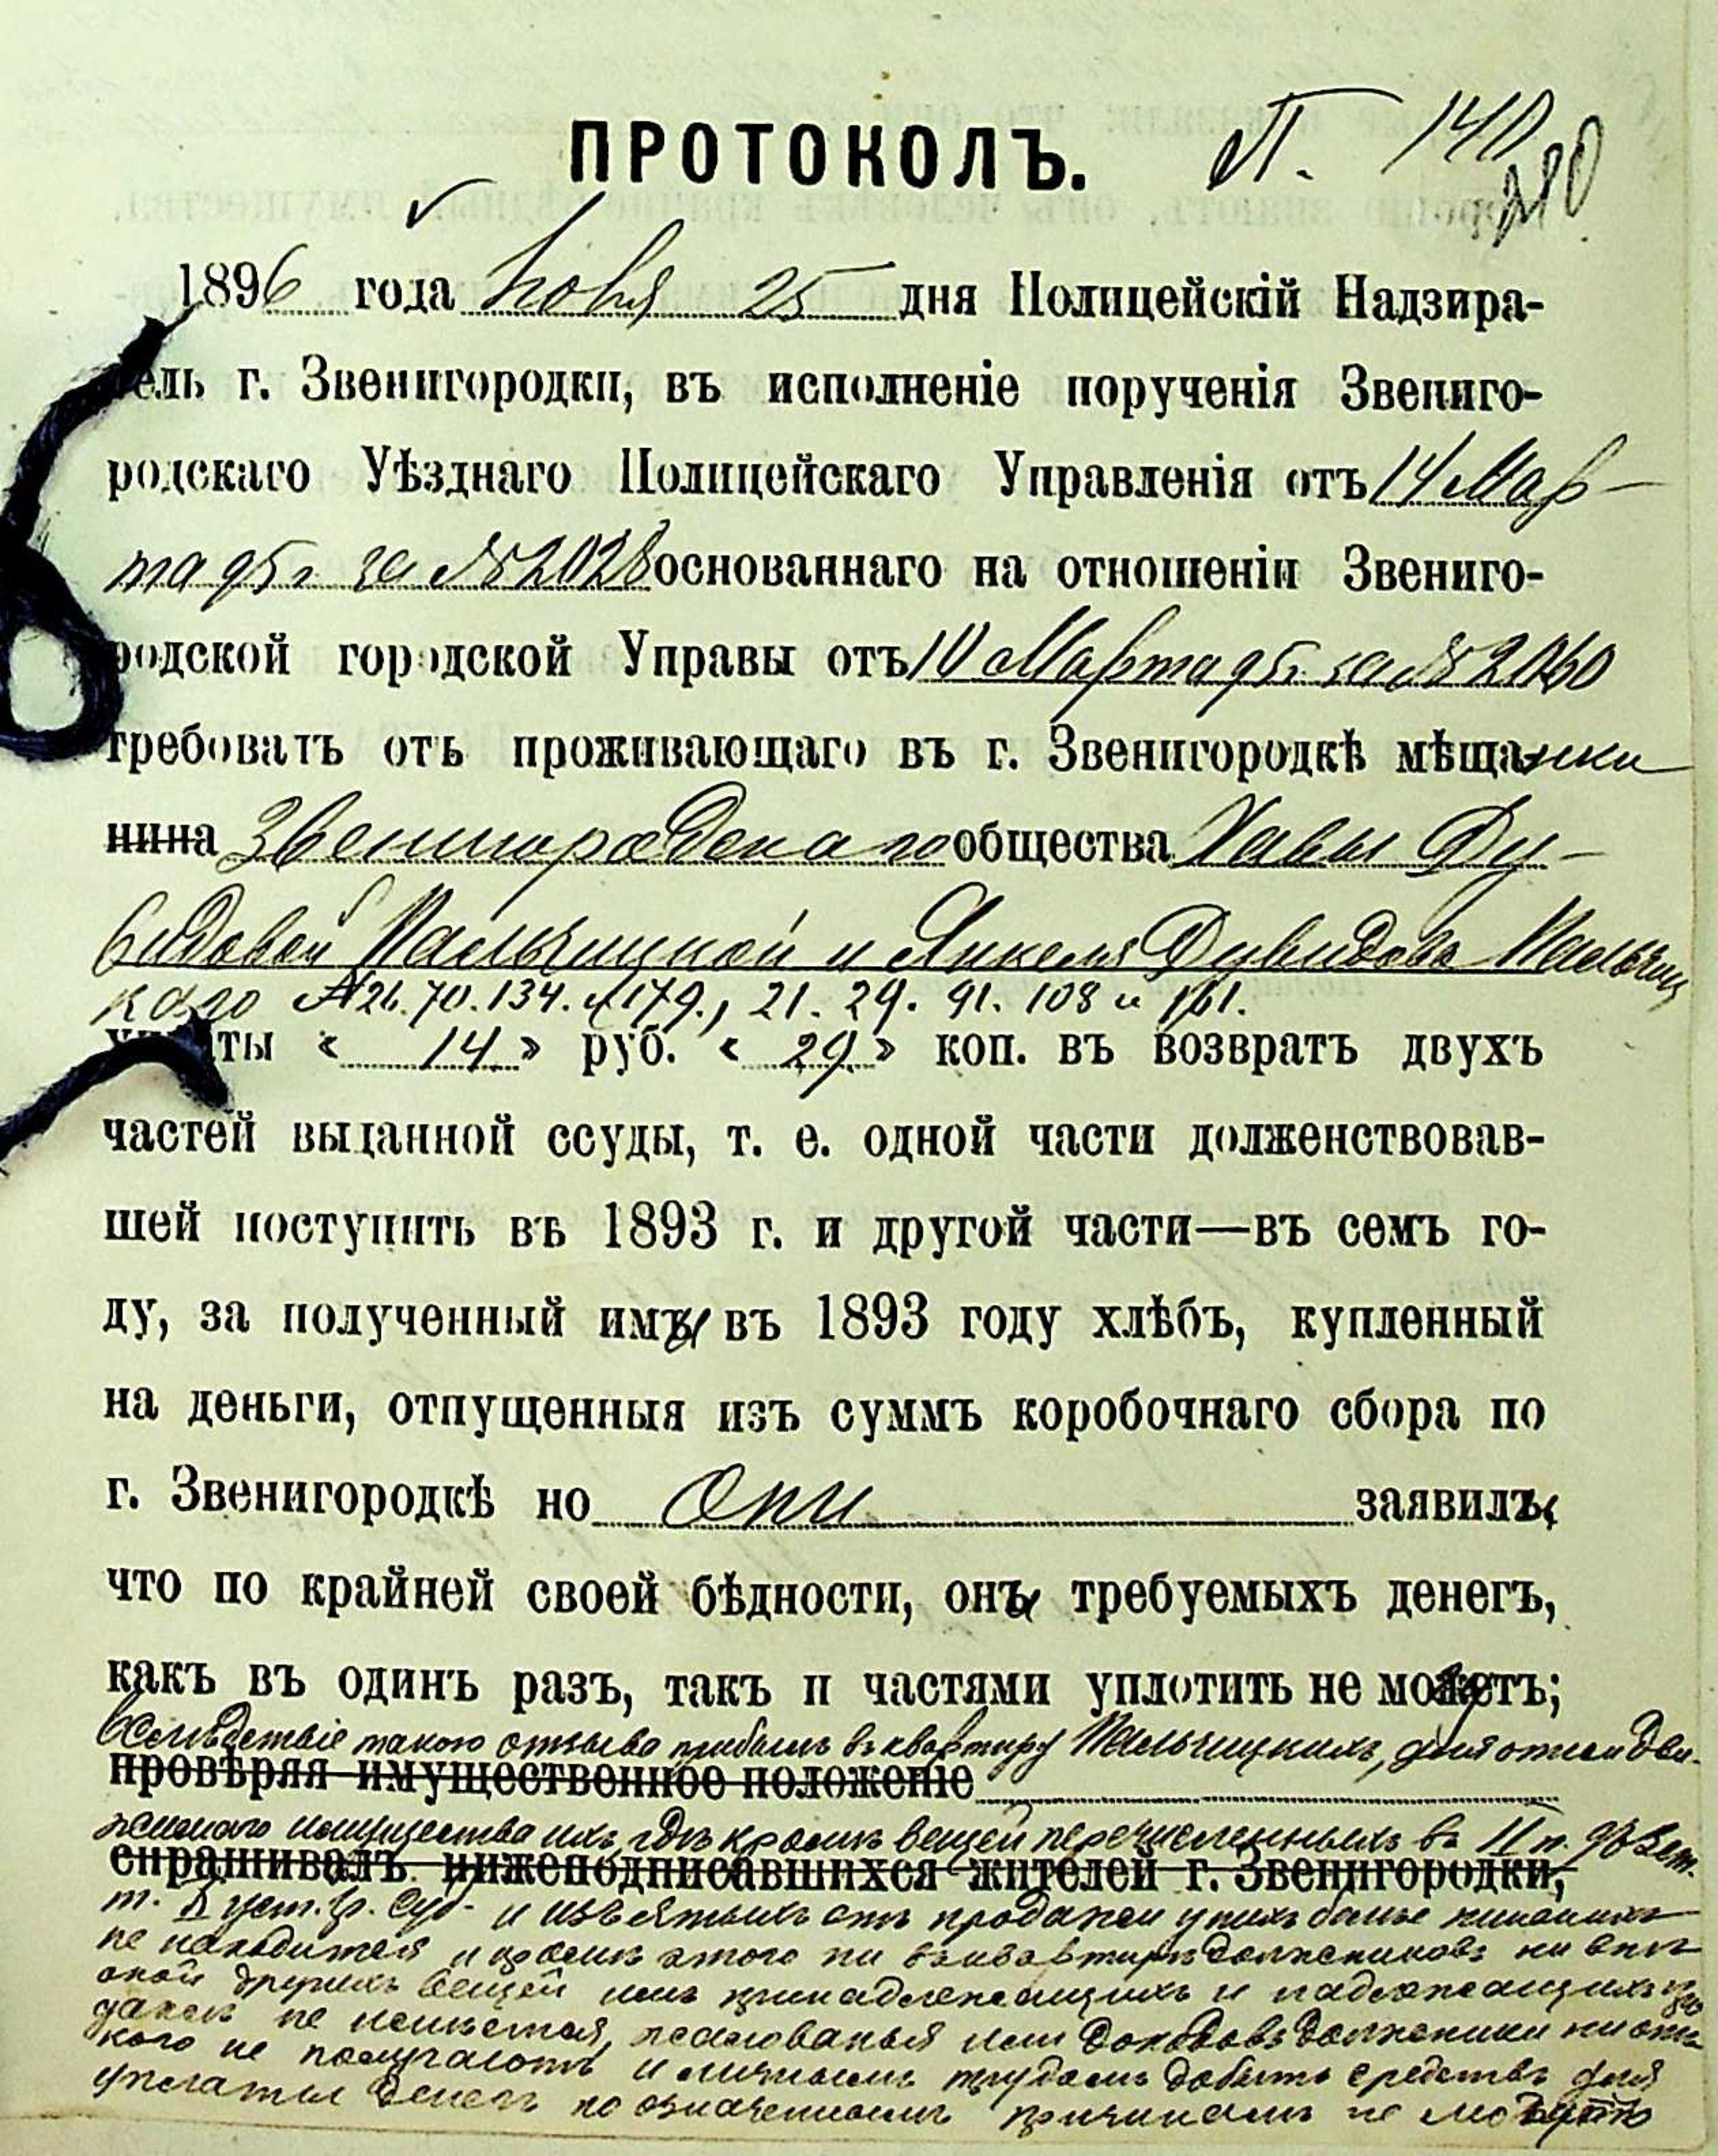 ПРОТОКОЛЪ. П. 140
210
1896 года Ноября 25 дня Полицейскій Надзира-
тель г. Звенигородки, въ исполненіе порученія Звениго-
родскаго Уѣзднаго Полицейскаго Управленія отъ 14 Мар-
та 95 г за № 2028 основаннаго на отношеніи Звениго-
родской городской Управы отъ 10 Марта 95 г. за № 2060
требовать отъ проживающаго въ г. Звенигородкѣ мѣщанки
нина Звенигородскаго общества Хавы Ду-
видовой Пальчицкой и Янкеля Дувидова Пальчиц
каго № 26. 70. 134. и 179., 21. 29. 91. 108 и 161.
уплаты « 14 » руб. « 29 » коп. въ возвратъ двухъ
частей выданной ссуды, т. е. одной части долженствовав-
шей поступить въ 1893 г. и другой части—въ семъ го-
ду, за полученный имъ въ 1893 году хлѣбъ, купленный
на деньги, отпущенныя изъ суммъ коробочнаго сбора по
г. Звенигородкѣ но они заявили
что по крайней своей бѣдности, они требуемыхъ денегъ,
какъ въ одинъ разъ, такъ и частями уплотить не могутъ;
Вслѣдствіе такого отзыва прибылъ въ квартиру Пальчицкихъ, для описи дви-
провѣряя имущественное положеніе
жимаго имущества ихъ, гдѣ кромѣ вещей перечисленныхъ въ II п. 973 ст.
спрашивалъ нижеподписавшихся жителей г. Звенигородки,
т. X уст. гр. суд. и изъятыхъ отъ продажи у нихъ болѣе никакихъ
не находится и кромѣ этого ни въ квартирѣ должниковъ ни внѣ
оной другихъ вещей имъ принадлежащихъ и надлежащихъ про
дажѣ не имѣется, жалованья или доходовъ должники ни отъ
кого не получаютъ и личнымъ трудомъ добыть средствъ для
уплаты денегъ по означеннымъ причинамъ не могутъ